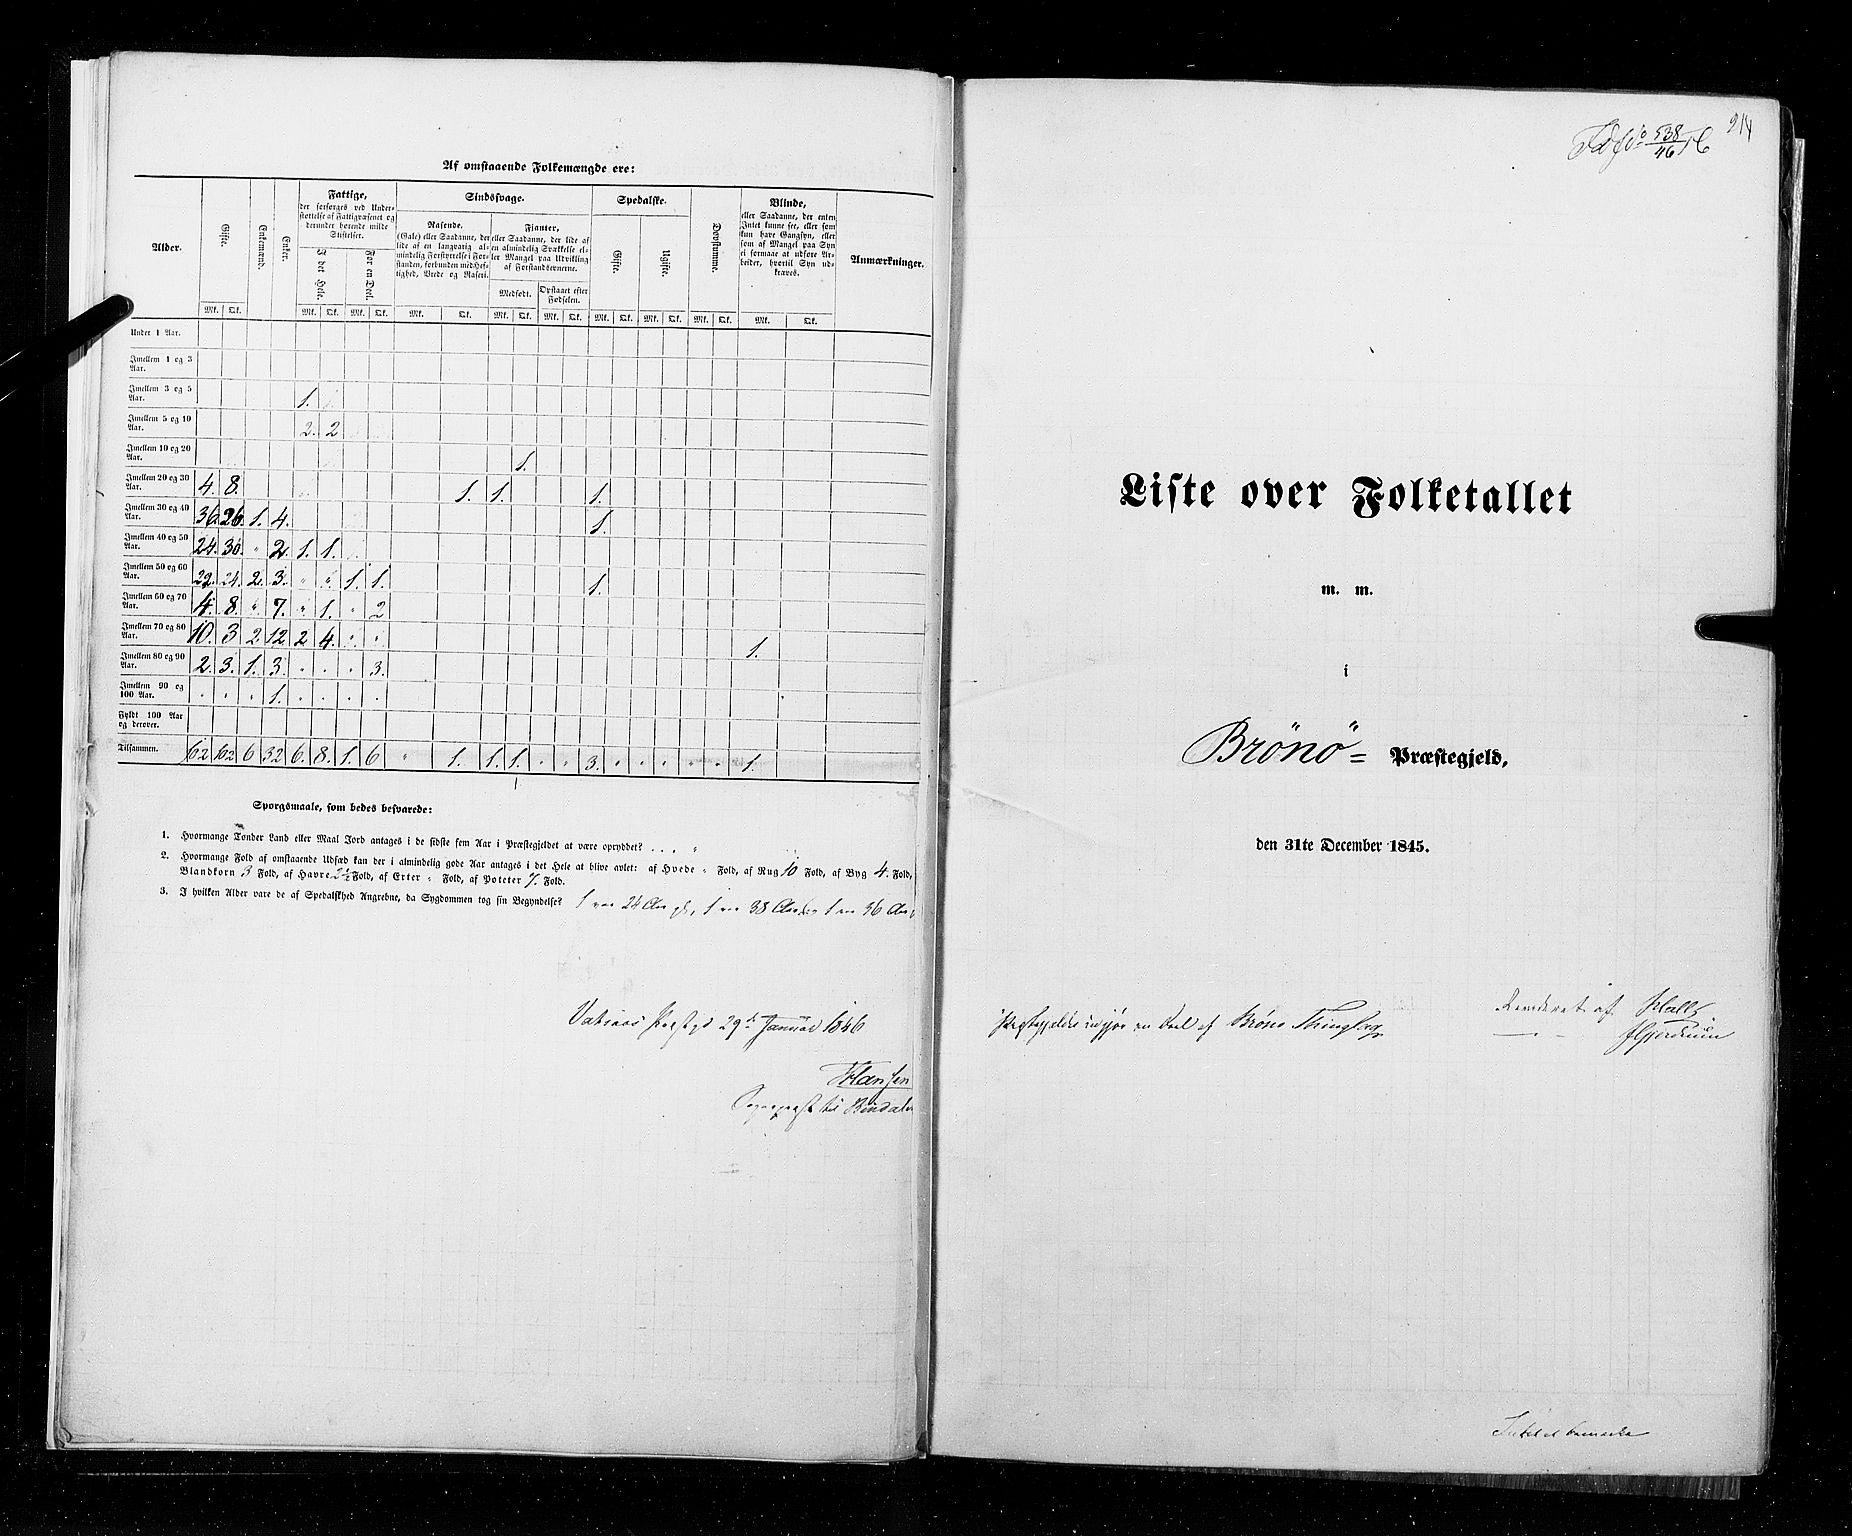 Af omstaaende Folkemængde ere:
Alder. Gifte. Enkemænd. Enker. Fattige, der forsørges ved Understøttelse af Fattigvæsenet og derunder hørende milde Stiftelser. Sindssvage. Spedalske. Døvstumme. Blinde, eller Saadanne, der enten Intet kunne see, eller som kun have Gangsyn, eller som af Mangel paa Syn ei formaae at udføre Arbeider, hvortil Syn udkræves. Anmærkninger.
I det Hele. For en Deel. Rasende. (Gale) eller Saadanne, der lide af en langvarig almindelig Forstyrrelse i Forstanden, forbunden med Heftighed, Vrede og Raseri. Fjanter, eller Saadanne, der lide af en almindelig Svækkelse eller Mangel paa Udvikling af Forstandsevnerne. Gifte. Ugifte.
Medfødt. Opstaaet efter Fødselen.
Mk. Qk. Mk. Qk. Mk. Qk. Mk. Qk. Mk. Qk. Mk. Qk. Mk. Qk. Mk. Qk. Mk. Qk. Mk. Qk.
Under 1 Aar.
Imellem 1 og 3 Aar.
Imellem 3 og 5 Aar. 1.
Imellem 5 og 10 Aar. 2. 2
Imellem 10 og 20 Aar. 1.
Imellem 20 og 30 Aar. 4. 8. 1. 1. 1.
Imellem 30 og 40 Aar. 36. 26. 1. 4. 1.
Imellem 40 og 50 Aar. 24. 30. " 2. 1. 1.
Imellem 50 og 60 Aar. 22. 24. 2. 3. " " 1. 1. 1.
Imellem 60 og 70 Aar. 4. 8. " 7. " 1. " 2
Imellem 70 og 80 Aar. 10. 3 2. 12 2 4. " " 1.
Imellem 80 og 90 Aar. 2. 3. 1. 3. " " " 3.
Imellem 90 og 100 Aar. " " " 1. " " " "
Fyldt 100 Aar og derover.
Tilsammen. 102 102 6 32 6. 8. 1. 6 " 1. 1. 1. " " 3. " " " " " 1.
Spørgsmaale, som bedes besvarede:
1. Hvormange Tønder Land eller Maal Jord antages i de sidste fem Aar i Præstegjeldet at være opryddet? . . . "
2. Hvormange Fold af omstaaende Udsæd kan der i almindelig gode Aar antages i det Hele at blive avlet: af Hvede " Fold, af Rug 10 Fold, af Byg 4. Fold,
Blandkorn 3 Fold, af Havre 2½ Fold, af Erter " Fold, af Poteter 7. Fold.
3. I hvilken Alder vare de af Spedalskhed Angrebne, da Sygdommen tog sin Begyndelse? 1 var 24 Aar gl., 1 var 38 Aar 1 var 36 Aar
29de Januar 1846
Hansen
Sogneprest til Bindalen
538
46
914
Liste over Folketallet
m. m.
i
Brönö= Præstegjeld,
den 31te December 1845.
Præstegjeldet udgjør en Deel af Brönö Thinglag
Revideret af